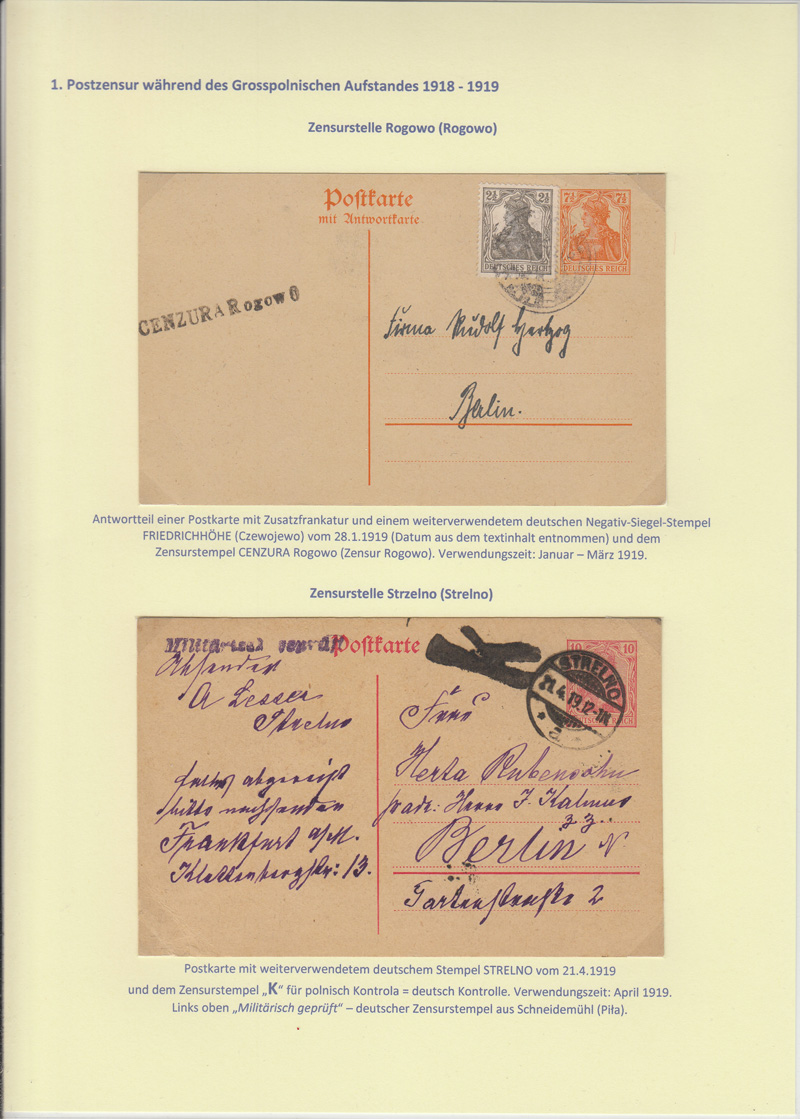 1. Postzensur während des Grosspolnischen Aufstandes 1918 - 1919
Zensurstelle Rogowo (Rogowo)
Postkarte
mit Antwortkarte
2½ 2½
DEUTSCHES REICH
7½ 7½
DEUTSCHES REICH
CENZURA Rogow0
Firma Rudolf Hertzog
Berlin.
Antwortteil einer Postkarte mit Zusatzfrankatur und einem weiterverwendetem deutschen Negativ-Siegel-Stempel
FRIEDRICHHÖHE (Czewojewo) vom 28.1.1919 (Datum aus dem textinhalt entnommen) und dem
Zensurstempel CENZURA Rogowo (Zensur Rogowo). Verwendungszeit: Januar – März 1919.
Zensurstelle Strzelno (Strelno)
Militärisch geprüft
Postkarte
10 10
REICH
STRELNO
21.4.19.12-1N
a
Absender
A Lesser
Strelno
falls abgereist
bitte nachsenden
Frankfurt a/M.
Klettenbergstr: 13.
Frau
Herta Rubensohn
p adr: Herrn J. Kalmus
z. Z.
Berlin N
Gartenstraße 2
Postkarte mit weiterverwendetem deutschem Stempel STRELNO vom 21.4.1919
und dem Zensurstempel „K“ für polnisch Kontrola = deutsch Kontrolle. Verwendungszeit: April 1919.
Links oben „Militärisch geprüft“ – deutscher Zensurstempel aus Schneidemühl (Piła).